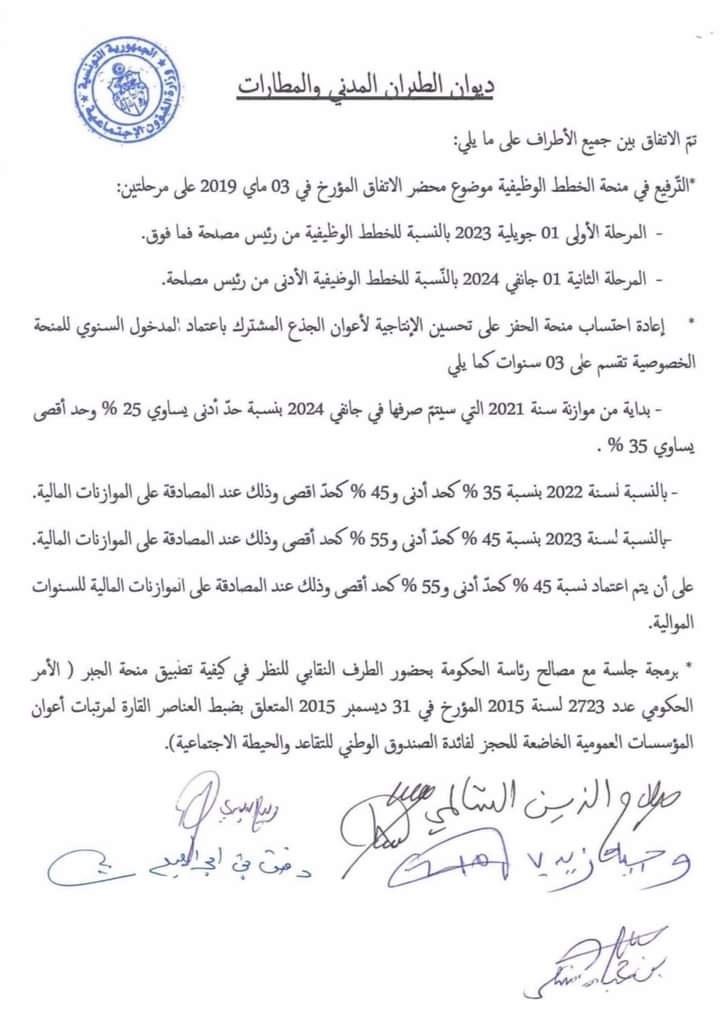 الجمهورية التونسية
وزارة الشؤون الإجتماعية
ديوان الطيران المدني والمطارات
تمّ الاتفاق بين جميع الأطراف على ما يلي:
*التّرفيع في منحة الخطط الوظيفية موضوع محضر الاتفاق المؤرخ في 03 ماي 2019 على مرحلتين:
- المرحلة الأولى 01 جويلية 2023 بالنسبة للخطط الوظيفية من رئيس مصلحة فما فوق.
- المرحلة الثانية 01 جانفي 2024 بالنّسبة للخطط الوظيفية الأدنى من رئيس مصلحة.
* إعادة احتساب منحة الحفز على تحسين الإنتاجية لأعوان الجذع المشترك باعتماد المدخول السنوي للمنحة
الخصوصية تقسم على 03 سنوات كما يلي
- بداية من موازنة سنة 2021 التي سيتمّ صرفها في جانفي 2024 بنسبة حدّ أدنى يساوي 25 % وحد أقصى
يساوي 35 % .
- بالنسبة لسنة 2022 بنسبة 35 % كحد أدنى و45 % كحدّ اقصى وذلك عند المصادقة على الموازنات المالية.
-بالنسبة لسنة 2023 بنسبة 45 % كحدّ أدنى و55 % كحد أقصى وذلك عند المصادقة على الموازنات المالية.
على أن يتم اعتماد نسبة 45 % كحدّ أدنى و55 % كحد أقصى وذلك عند المصادقة على الموازنات المالية للسنوات
الموالية.
* برمجة جلسة مع مصالح رئاسة الحكومة بحضور الطرف النقابي للنظر في كيفية تطبيق منحة الجبر ( الأمر
الحكومي عدد 2723 لسنة 2015 المؤرخ في 31 ديسمبر 2015 المتعلق بضبط العناصر القارة لمرتبات أعوان
المؤسسات العمومية الخاضعة للحجز لفائدة الصندوق الوطني للتقاعد والحيطة الاجتماعية).
صلاح الدين السالمي
وجيهة زيدي